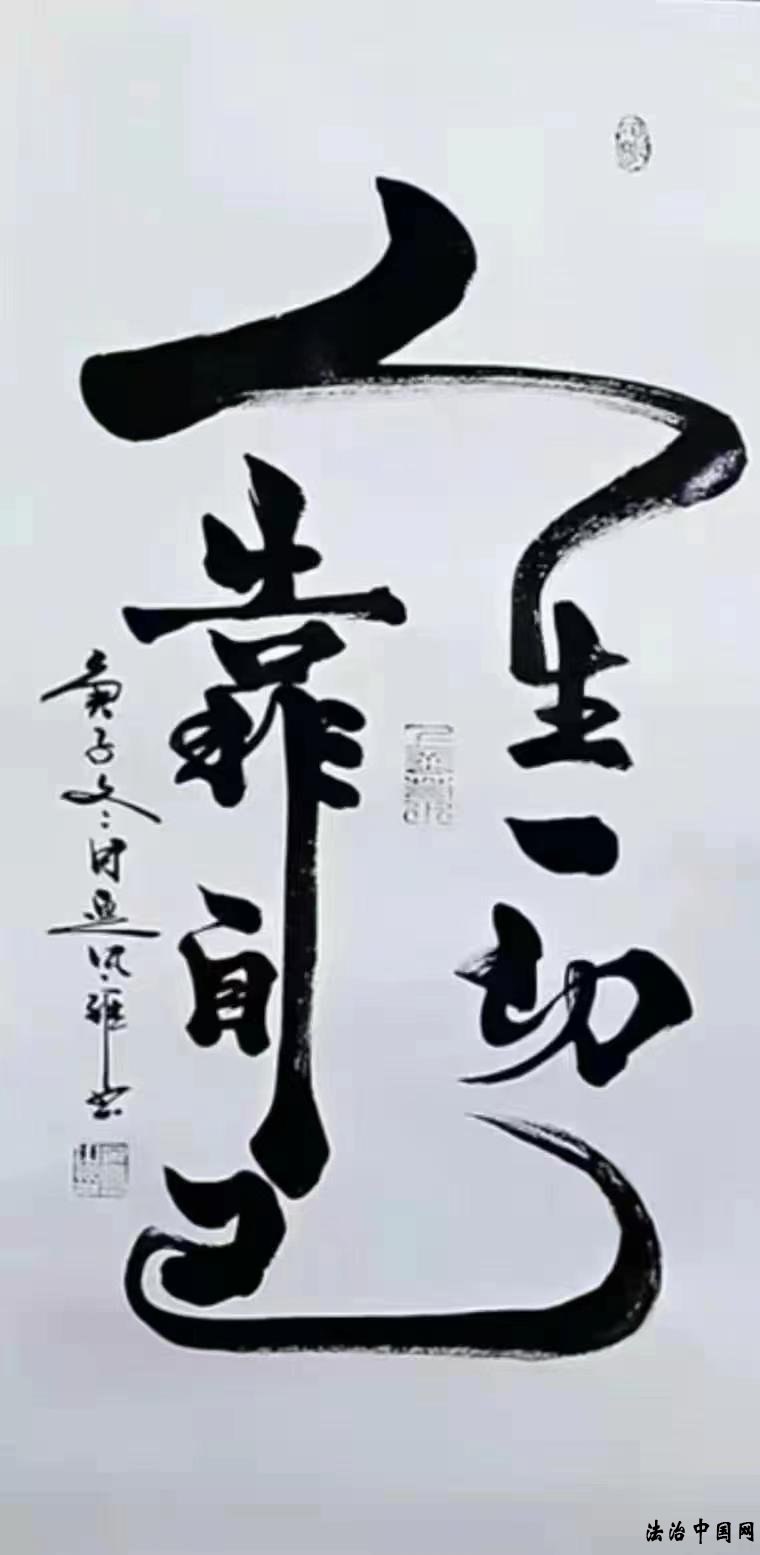 人生一切
靠自己
庚子冬月风雅书
法治中国网